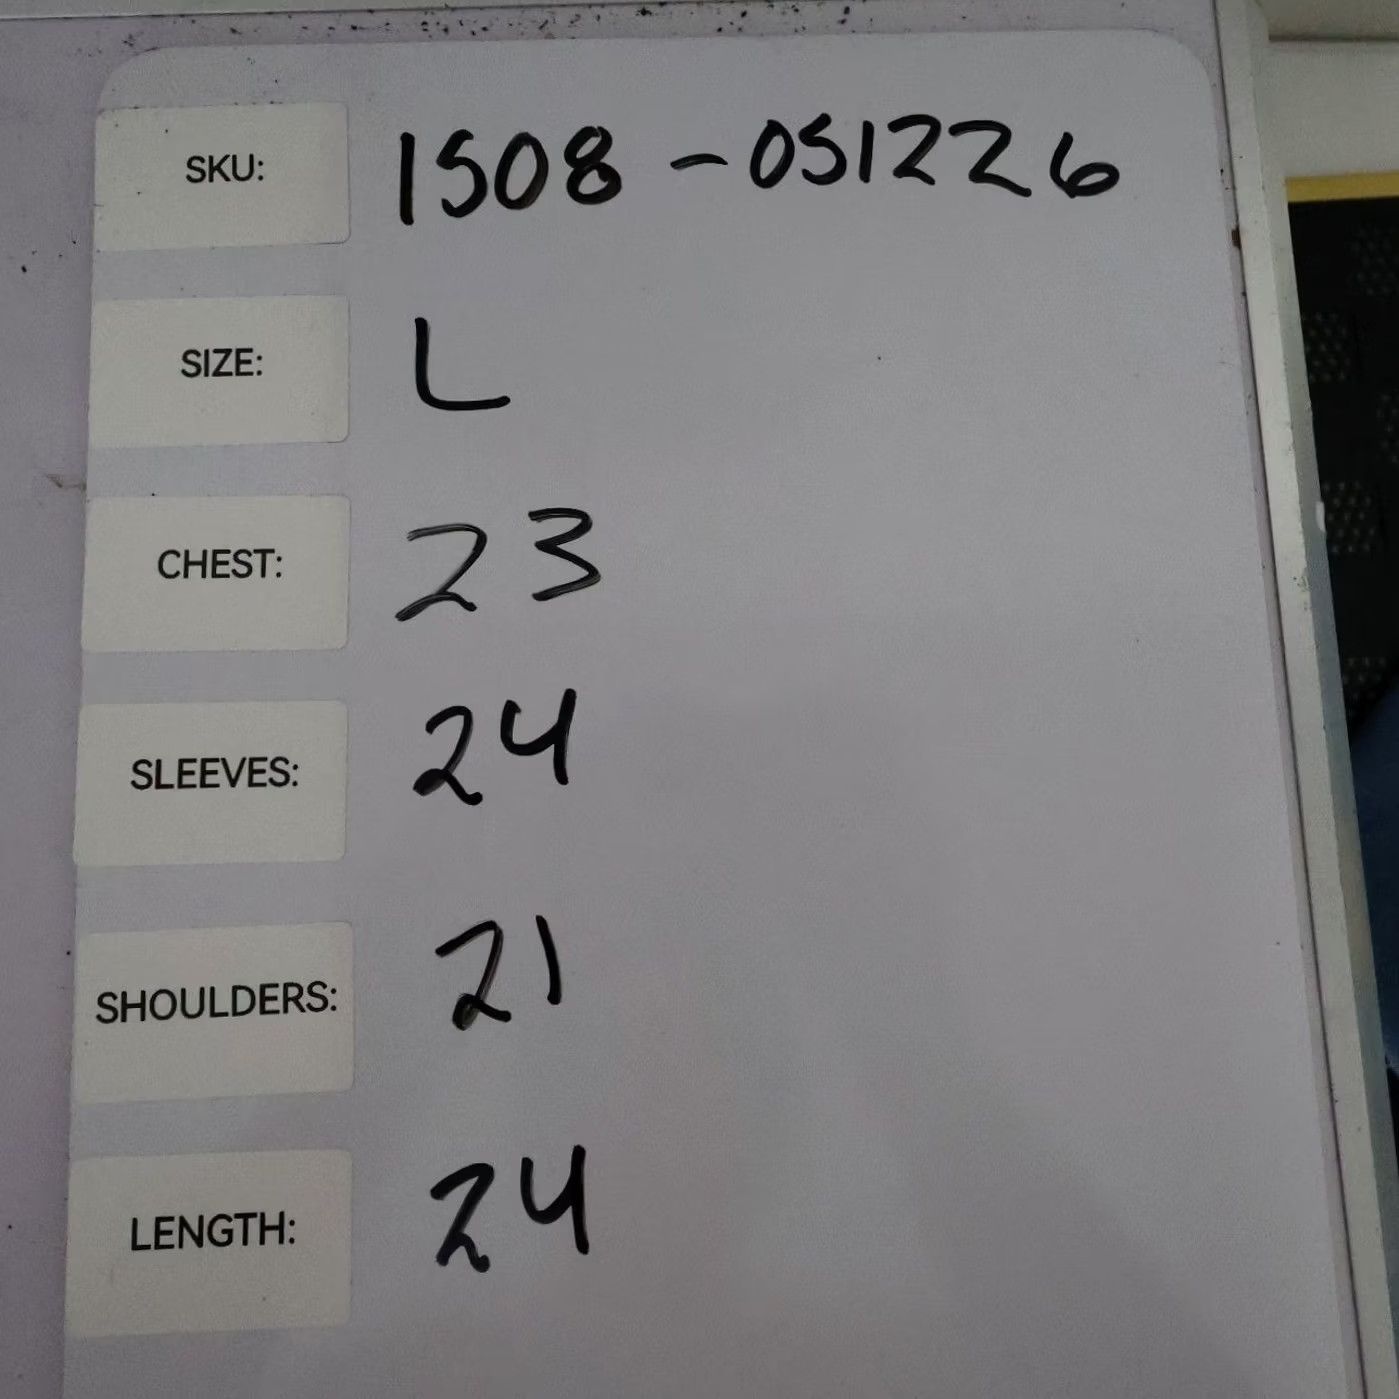 SKU: 1508-051226
SIZE: L
CHEST: 23
SLEEVES: 24
SHOULDERS: 21
LENGTH: 24